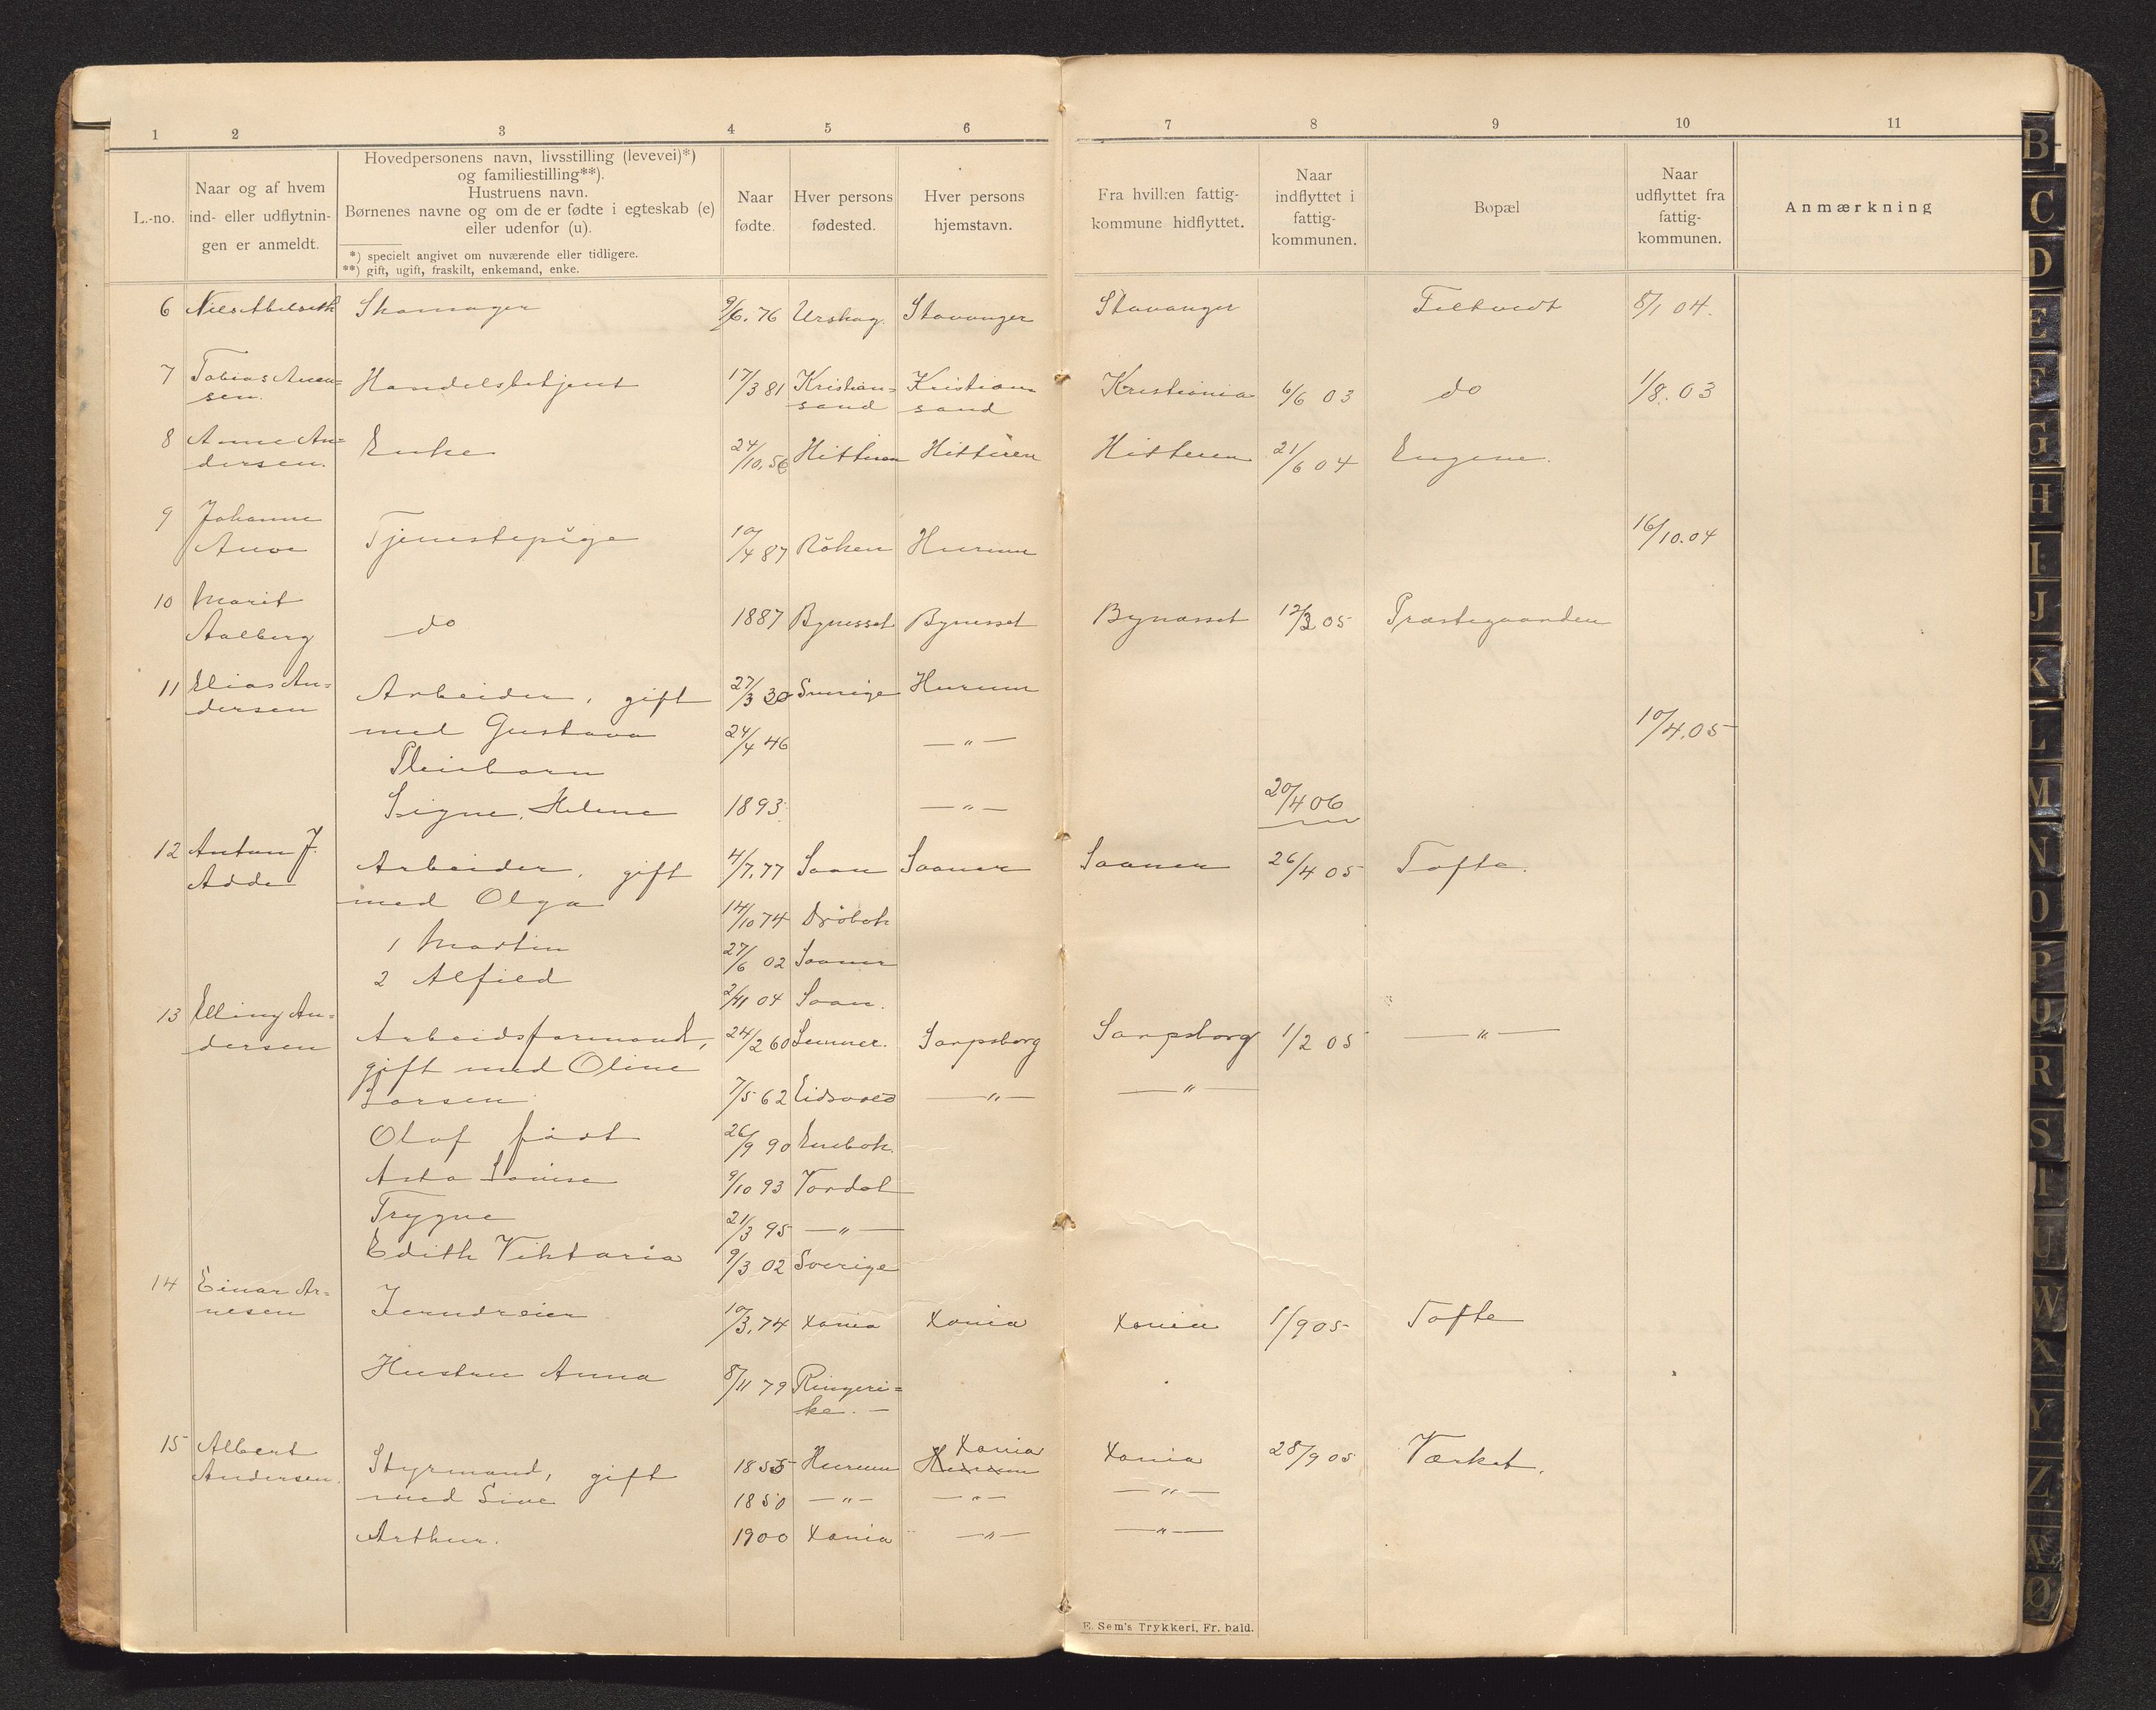 1 2 3 4 5 6 7 8 9 10 11
L.-no.
Naar og af hvem
ind- eller udflytnin-
gen er anmeldt.
Hovedpersonens navn, livsstilling (levevei)*)
og familiestilling**).
Hustruens navn.
Børnenes navne og om de er fødte i egteskab (e)
eller udenfor (u).
*) specielt angivet om nuværende eller tidligere.
**) gift, ugift, fraskilt, enkemand, enke.
Naar
fødte.
Hver persons
fødested.
Hver persons
hjemstavn.
Fra hvilken fattig-
kommune hidflyttet.
Naar
indflyttet i
fattig-
kommunen.
Bopæl
Naar
udflyttet fra
fattig-
kommunen.
Anmærkning
6 Nils Abelseth Skomager 9/6. 76 Urskog. Stavanger Stavanger Filtvedt 8/1 04.
7 Tobias Anen= Handelsbetjent 17/3 81 Kristian= Kristian= Kristiania 6/6 03 do 1/8. 03
sen. sand sand
8 Anne An= Enke 24/10. 56 Hitteren Hitteren Hitteren 21/6 04 Engene.
dersen.
9 Johanne
Auve Tjenestepige 10/4 87 Röken Hurum 16/10. 04
10 Marit
Aalberg do 1887 Bynesset Bynesset Bynæsset 12/3 05 Præstegaarden
11 Elias An= Arbeider, gift 27/3 30 Sverige Hurum
dersen med Gustava 24/4 46 — " — 10/4. 05
Pleiebarn
Signe, Helene 1893 — " — 20/4 06
12 Anton J. Arbeider, gift 4/7. 77 Soon Sooner Sooner 26/4 05 Tofte.
Adde med Olga 14/10 74 Dröbak
1 Martin 27/6 02 Sooner
2 Alfild 2/11 04 Soon.
13 Elling An= Arbeidsformand, 24/2 60 Sarpsborg Sarpsborg 1/2 05 — " —
dersen gift med Oline
Larsen 7/5 62 Eidsvold — " — — " —
Olaf födt 26/9 90 Enebak.
Asta Lovise 9/10 93 Vordal
Trygve 21/3 95 — " —
Edith Viktoria 9/3 02 Sverige
14 Einar Ar= Jerndreier 10/3. 74 Xania Xania Xania 1/9 05 Tofte
nesen
Hustru Anna 8/11 79 Ringeri=
ke. —
15 Albert Styrmand, gift 1855 Hurum Hurum Xania Xania 28/9 05 Værket.
Andersen. med Sine 1850 — " — — " — — " —
Arthur. 1900 Xania — " — — " —
E. Sem's Trykkeri, Fr. hald.
B
C
D
E
F
G
H
I
J
K
L
M
N
O
P
Q
R
S
T
U
W
X
Y
Z
Æ
Ø